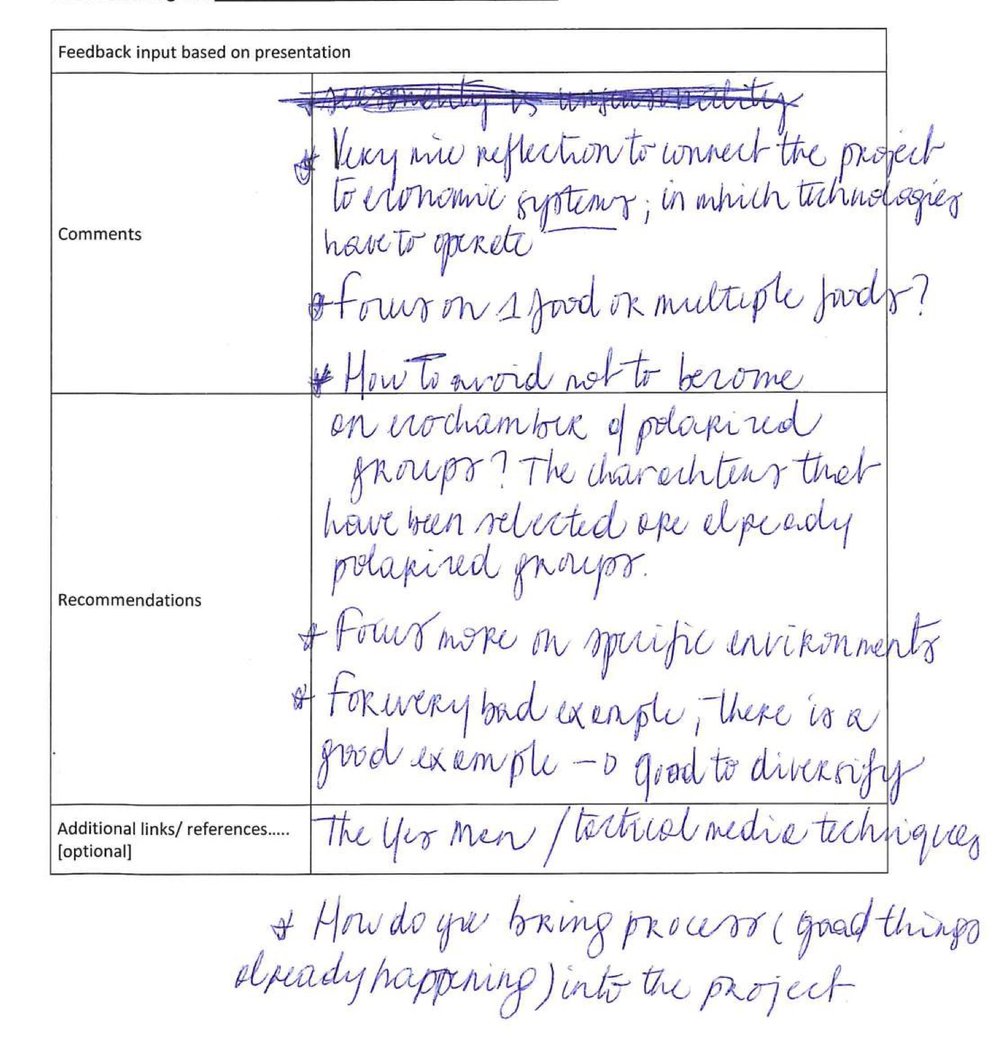 Feedback input based on presentation
Comments
is
* Very nice reflection to connect the project
to economic systems, in which technologies
have to operate
* Focus on 1 food or multiple foods?
* How to avoid not to become
an echochamber of polarized
groups? The charachters that
have been selected are already
polarized groups.
Recommendations
* Focus more on specific environments
* For every bad example, there is a
good example → good to diversify
Additional links/ references.....
[optional]
The Yes Men / tactical media techniques
* How do you bring process (good things
already happening) into the project